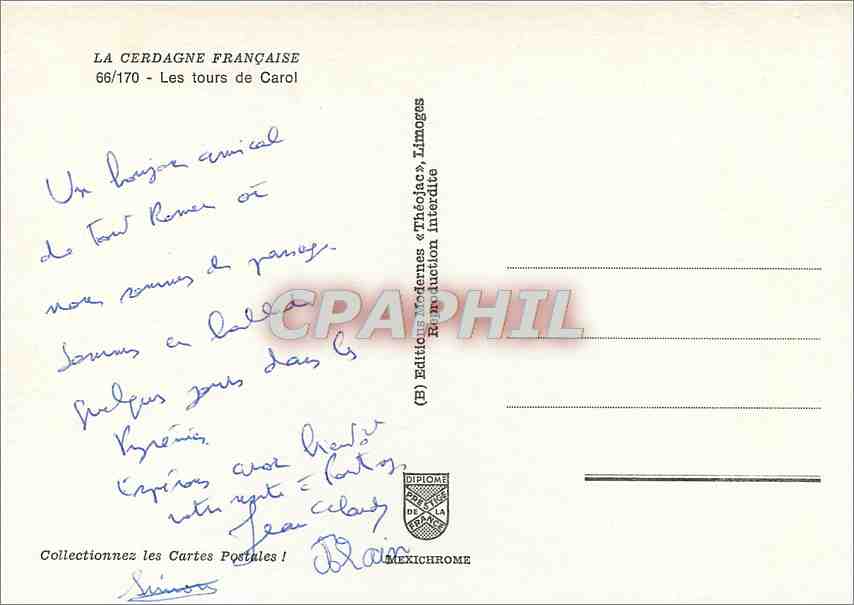 LA CERDAGNE FRANÇAISE
66/170 - Les tours de Carol
Un bonjour amical
de Tour Romeu où
nous sommes de passage.
Sommes en ballade
quelques jours dans les
Pyrénées.
Espérons avoir
votre
Jean Claude
Alain
Simon
Collectionnez les Cartes Postales !
(B) Editions Modernes «Théojac», Limoges
Reproduction interdite
CPAPHIL
DIPLOME
PRESTIGE
DE LA
FRANCE
MEXICHROME